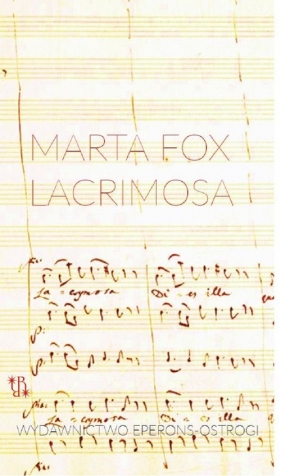 MARTA FOX
LACRIMOSA
La crymosa Di es illa
La crymosa Di es illa
WYDAWNICTWO EPERONS-OSTROGI